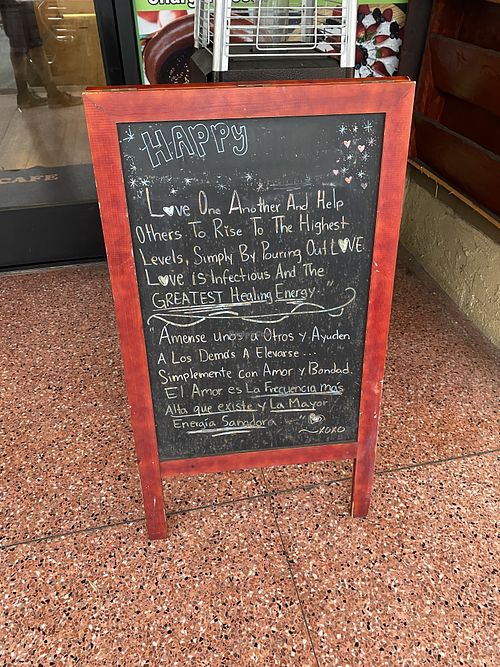 HAPPY
"Love One Another And Help
Others To Rise To The Highest
Levels, Simply By Pouring Out LOVE.
Love is Infectious And The
GREATEST Healing Energy."
"Amense unos a Otros y Ayuden
A Los Demás A Elevarse...
Simplemente con Amor y Bondad.
El Amor es La Frecuencia mas
Alta que existe y La Mayor
Energia Sanadora
XOXO
CAFE